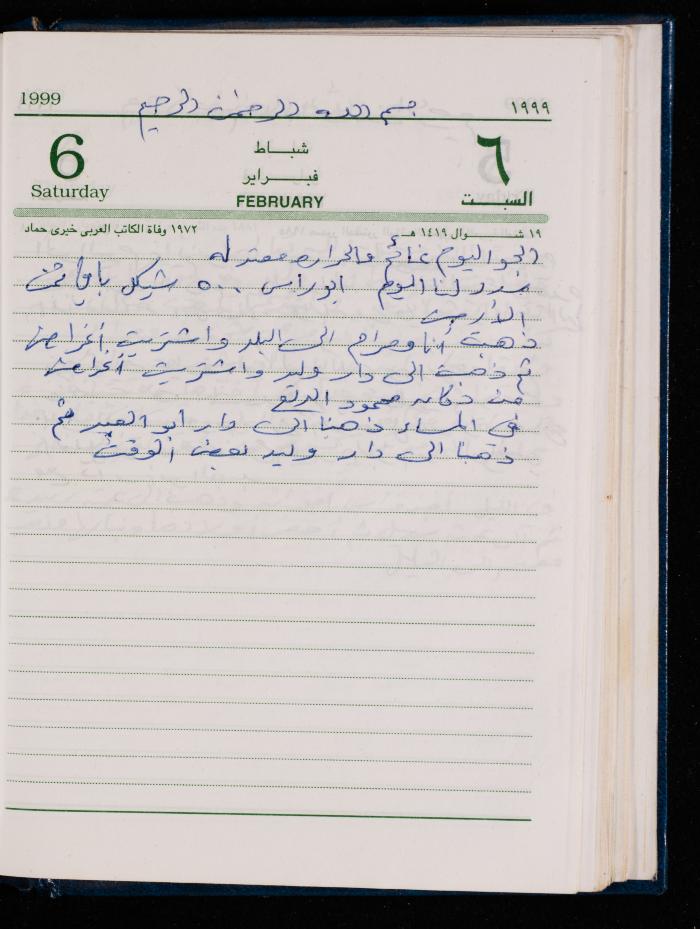 1999 بسم الله الرحمن الرحيم ١٩٩٩
6 شباط ٦
فبراير
Saturday FEBRUARY السبت
١٩ شوال ١٤١٩ هـ ١٩٧٢ وفاة الكاتب العربى خيرى حماد
الجو اليوم غائم والحراره معتدله
سدد لنا اليوم ابوراس ٥٠٠ شيكل باقي ثمن
الأرض
ذهبت أنا ومرام الى البلد واشتريت أغراض
ثم ذهبت الى دار وليد واشتريت أغراض
من دكانه محمود
في المساء ذهبنا الى دار أبو العبد ثم
ذهبنا الى دار وليد بعض الوقت